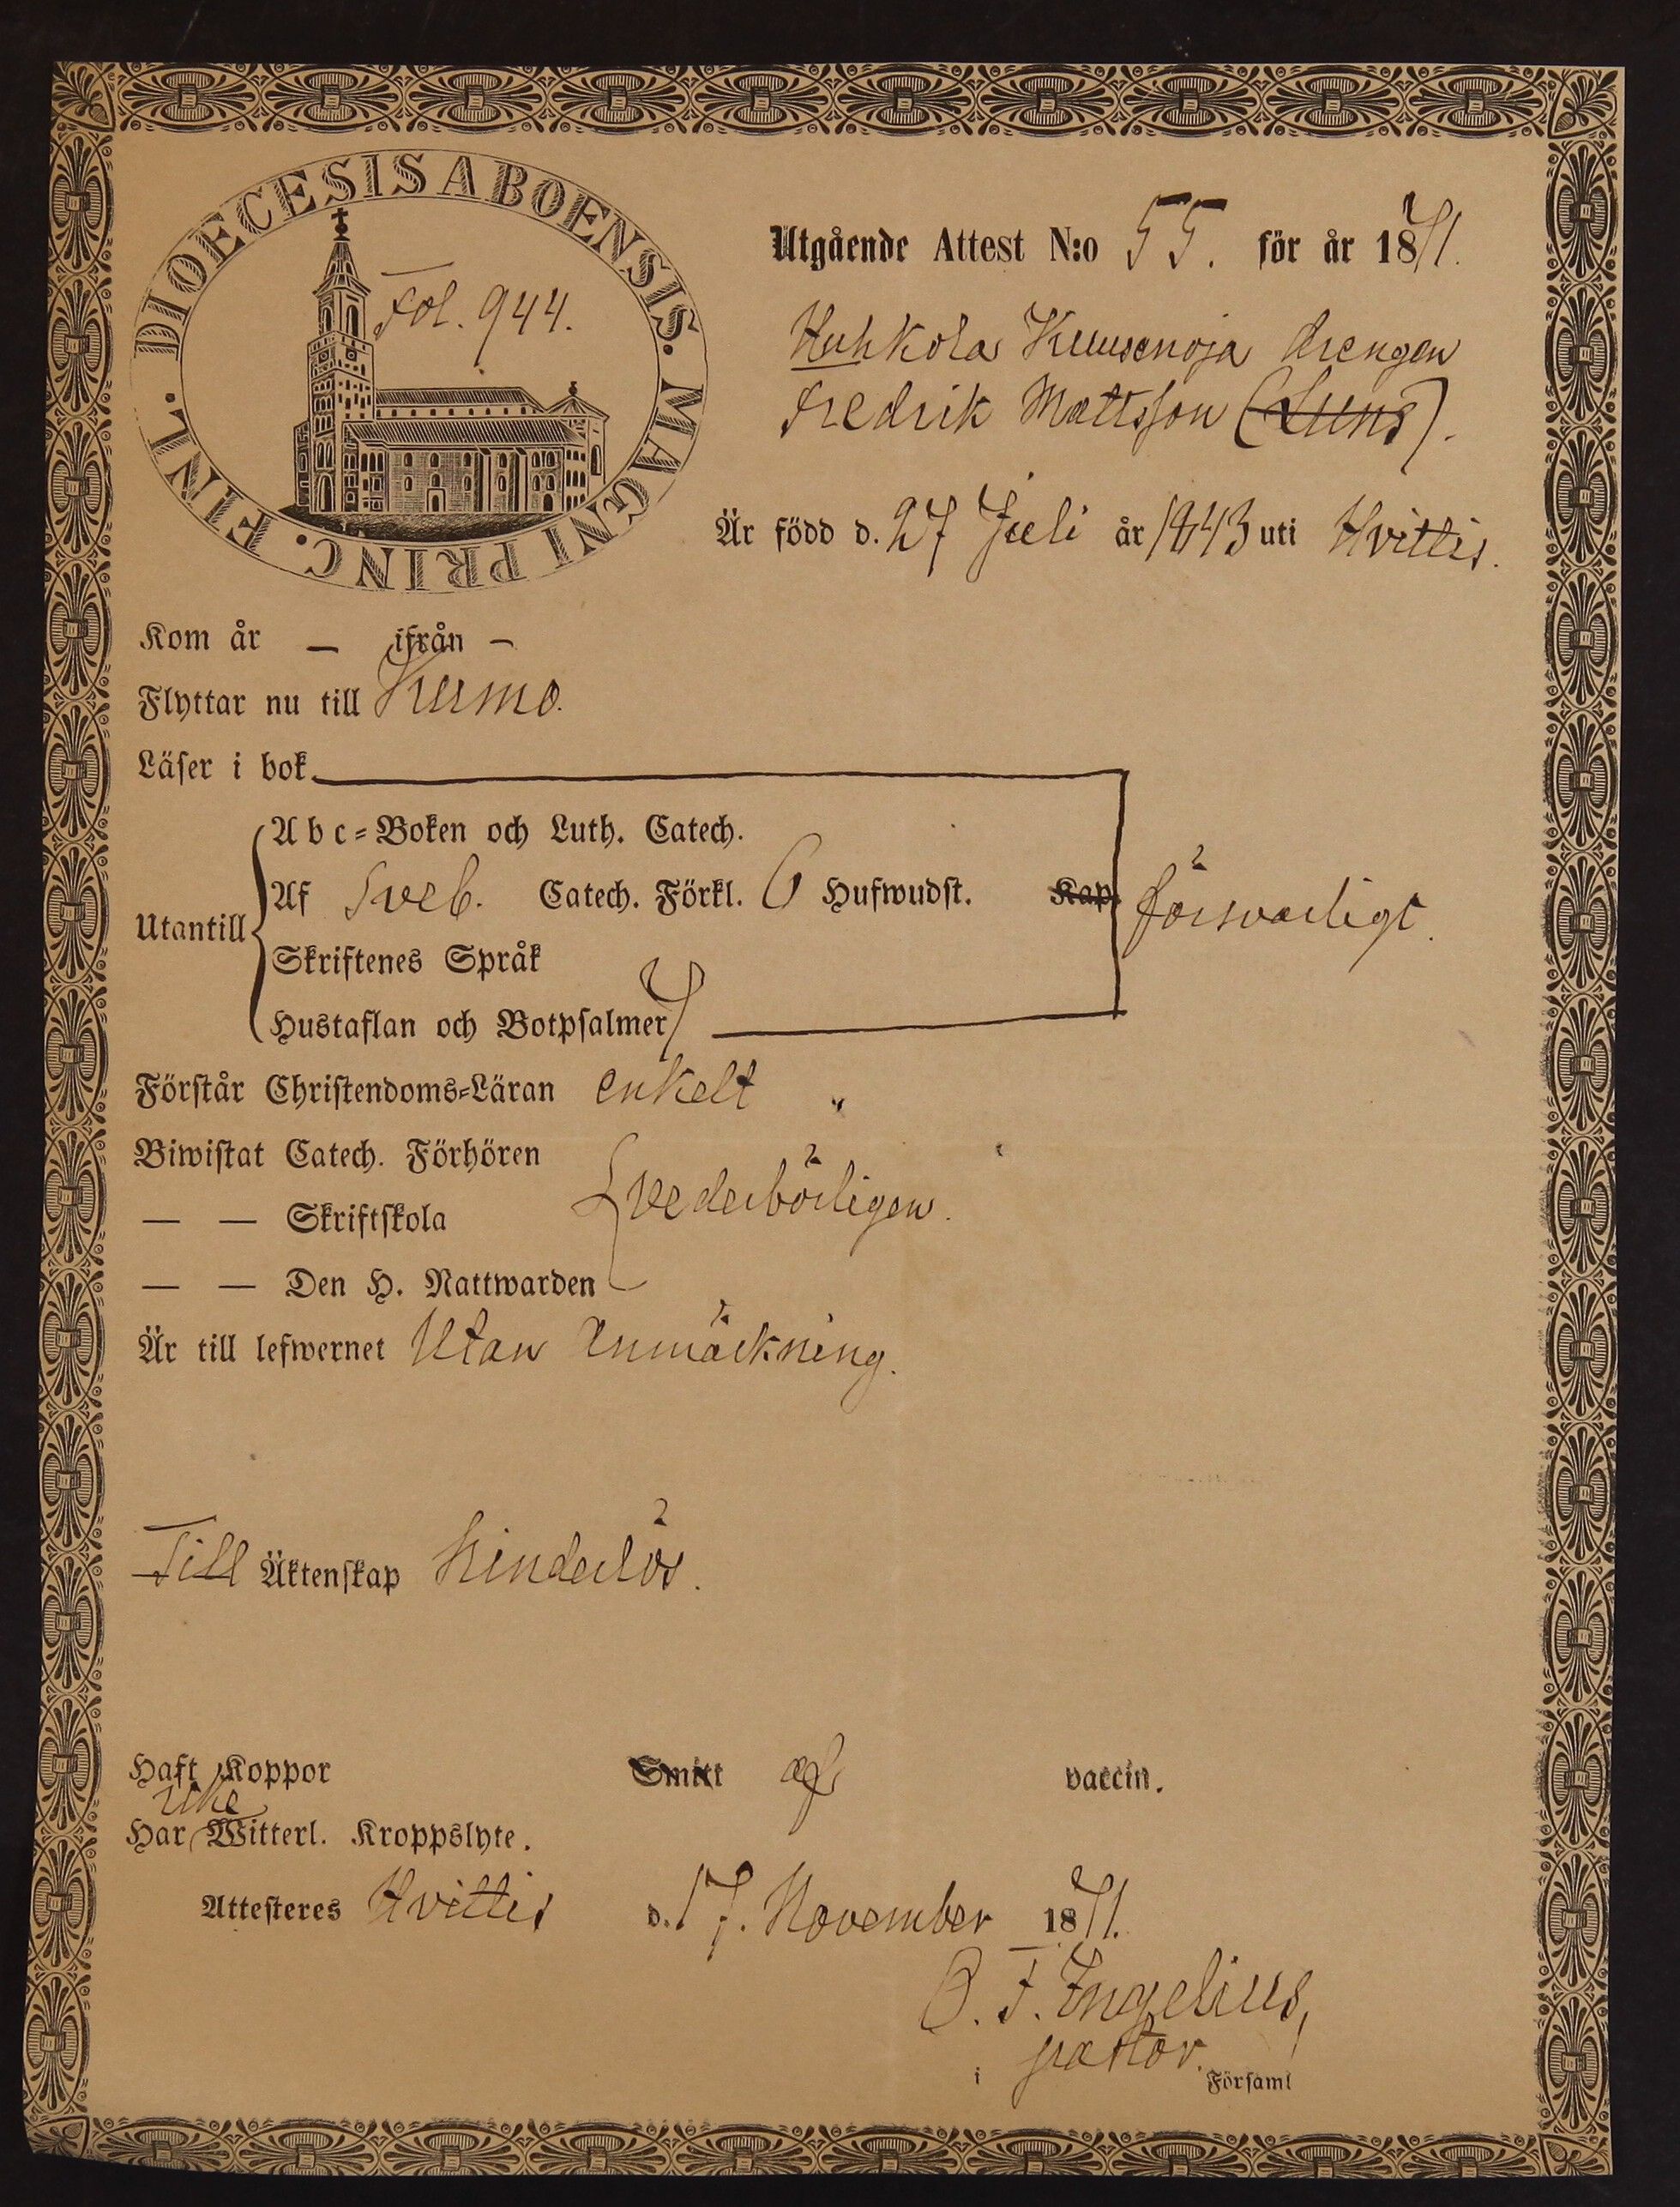 DIOECESIS ABOENSIS. MAGNI PRINC. FINL.
Fol. 944.
Utgående Attest N:o 55. för år 1871.
Huhkola Kuusenoja drengen
Fredrik Mattsson (Luns).
Är född d. 27 Juli år 1843 uti Hvittis.
Kom år — ifrån —
Flyttar nu till Kumo.
Läser i bok
Abc-Boken och Luth. Catech.
Af Sveb. Catech. Förkl. 6 Hufwudst. Kap. försvarligt.
Utantill
Skriftenes Språk
Hustaflan och Botpsalmer 7
Förstår Christendoms-Läran enkelt
Biwistat Catech. Förhören
— — Skriftskola vederbörligen.
— — Den H. Nattwarden
Är till lefwernet Utan Anmärkning.
Till Äktenskap hinderlös.
Haft Koppor Smitt af vaccin.
icke
Har Witterl. Kroppslyte.
Attesteres Hvittis d. 17. November 1871.
O. F. Ingelius,
pastor.
i Församl